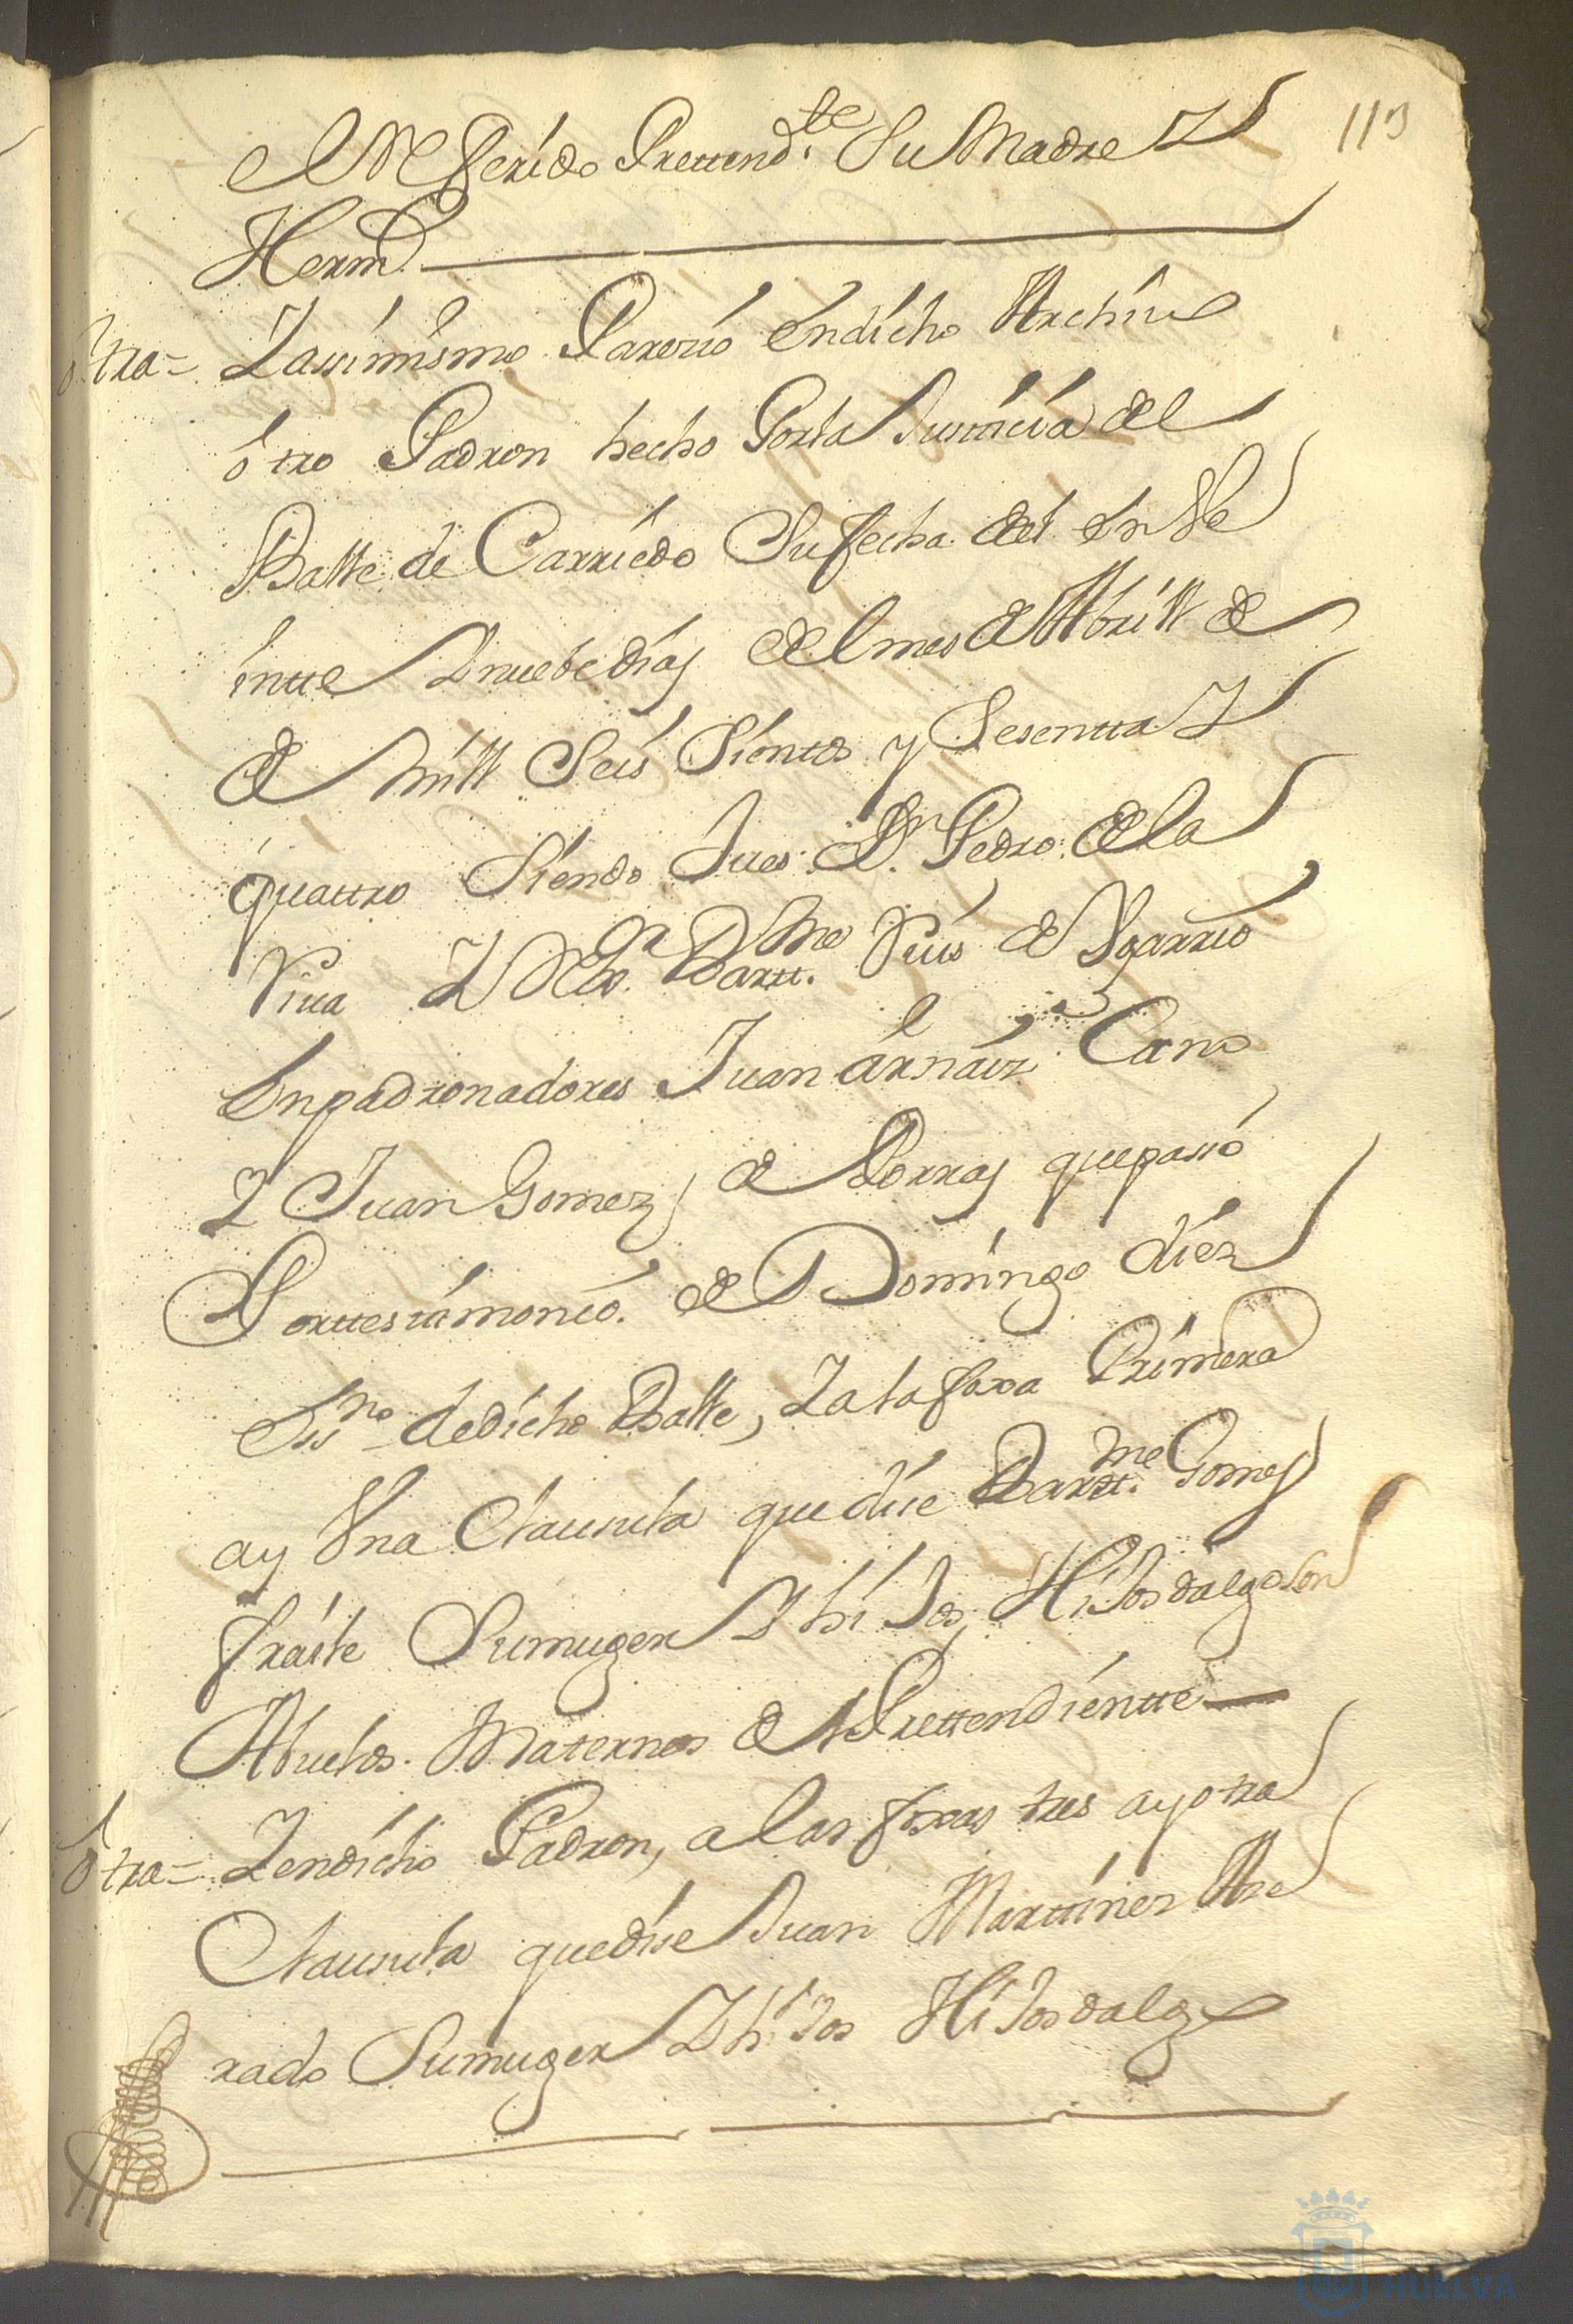 113
el Referido Prettend.te Su Madre Y
Herm.o
Otra = Yassimismo Parezio en dicho Archivo
otro Padron hecho Porla Justicia del
Balle de Carriedo Su fecha del en Ve
intte Y nuebe dias del mes de Abrill de
de mill Seis Sientos y Sesentta Y
quattro Siendo Jues D.n Pedro de la
Riua Y Rex.or Bartt.me Ruis de Ygarrio
Enpadronadores Juan de Arnaiz Cano
Y Juan Gomez de Porras que passó
Porttestimonio de Domingo diez
Ess.no de dicho Balle, Y ala foxa Primera
ay Vna Clausula que dise Bartt.me Gomes
fraile Su muger Y hiJos, HiJos dalgo Son
Abuelos Maternos del Prettendientte
Otra = Y en dicho Padron, a las foxas tres ay otra
Clausula que dise Juan Marttines Are
rado Su muger Y hiJos HiJos dalgo
HUELVA